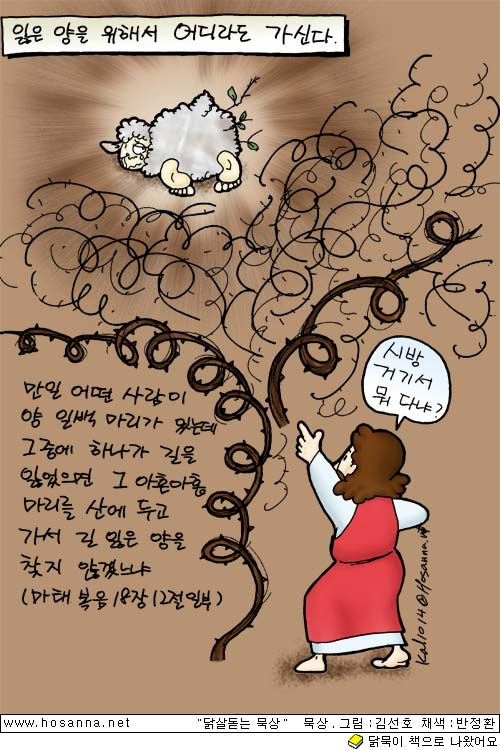 잃은 양을 위해서 어디라도 가신다.
시방
거기서
뭐 다냐?
만일 어떤 사람이
양 일백 마리가 있는데
그중에 하나가 길을
잃었으면 그 아흔아홉
마리를 산에 두고
가서 길 잃은 양을
찾지 않겠느냐
(마태복음 18장 12절 일부)
www.hosanna.net
"닭살돋는 묵상" 묵상.그림:김선호 채색:반정환
닭묵이 책으로 나왔어요